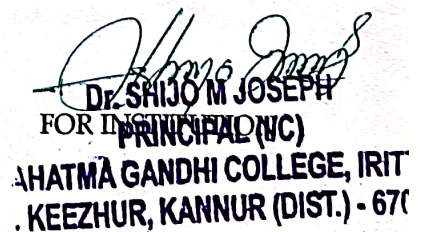 Dr. SHIJO M JOSEPH
FOR INSTITUTION
PRINCIPAL (I/C)
AHATMA GANDHI COLLEGE, IRIT
. KEEZHUR, KANNUR (DIST.) - 670